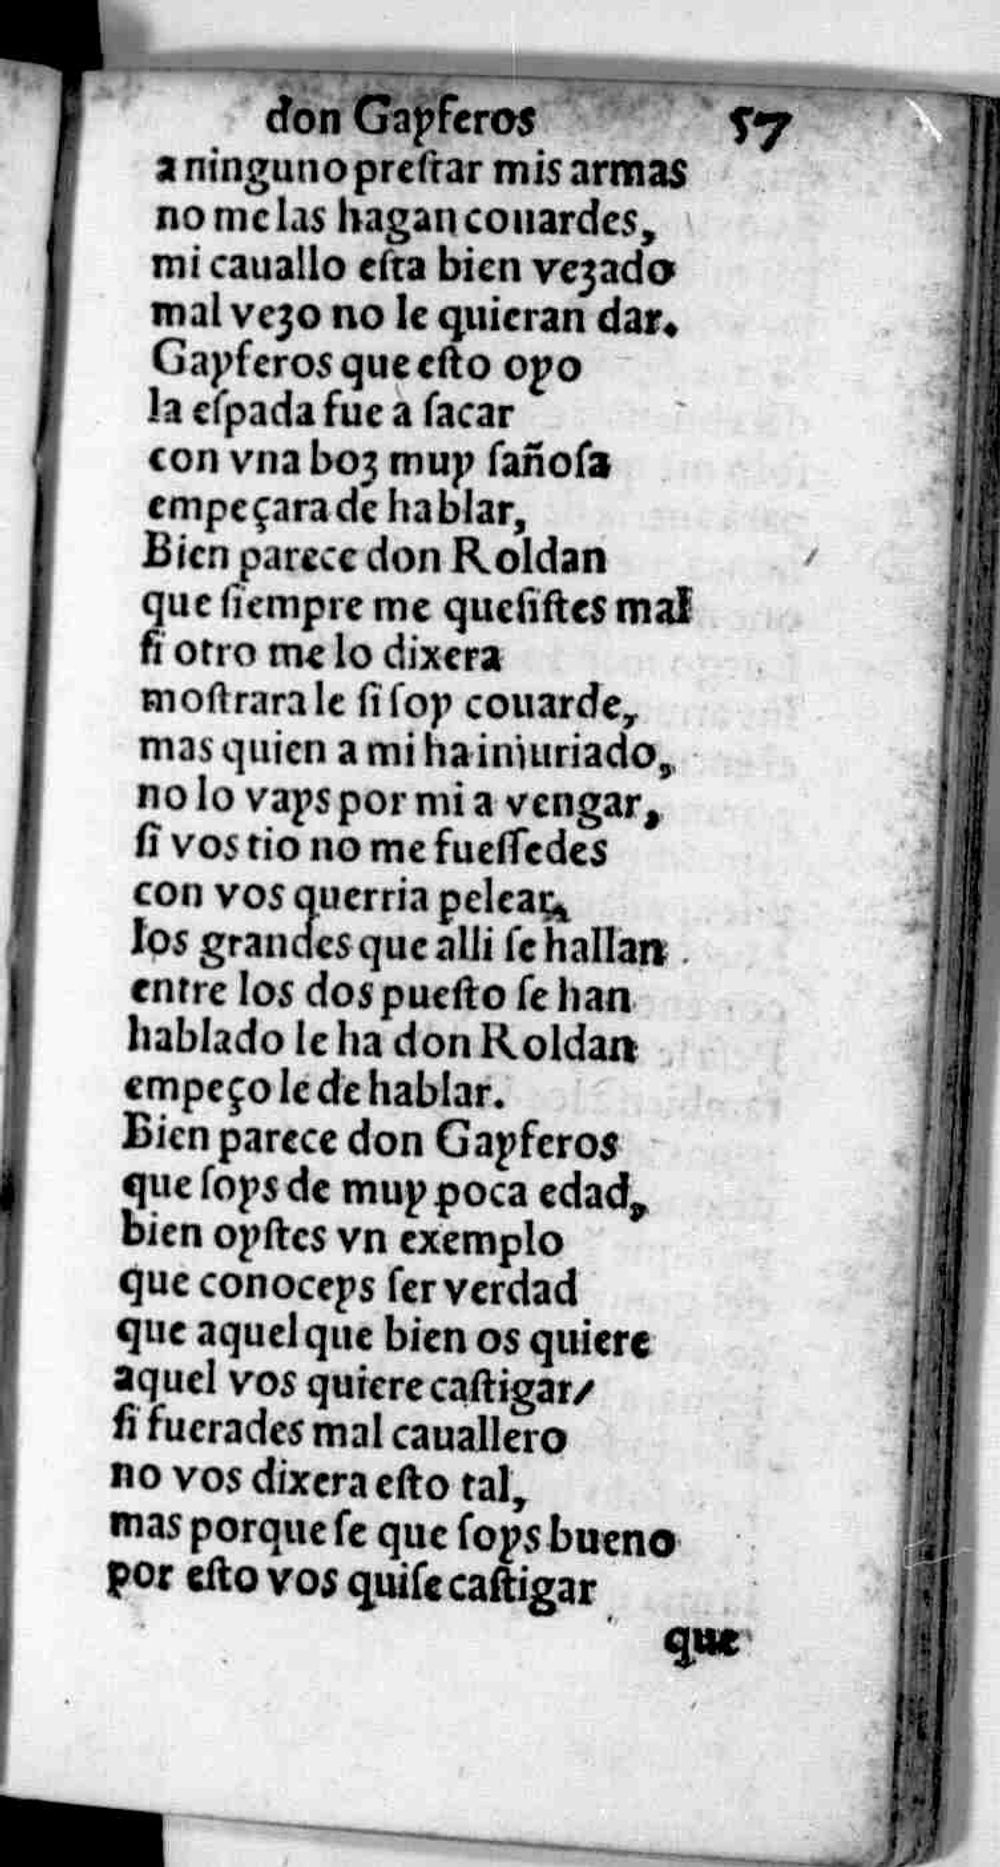 don Gayferos 57
a ninguno preſtar mis armas
no me las hagan couardes,
mi cauallo eſta bien vezado
mal vezo no le quieran dar.
Gayferos que eſto oyo
la eſpada fue a ſacar
con vna boz muy ſañoſa
empeçara de hablar,
Bien parece don Roldan
que ſiempre me queſiſtes mal
ſi otro me lo dixera
moſtrara le ſi ſoy couarde,
mas quien a mi ha iniuriado,
no lo vays por mi a vengar,
ſi vos tio no me fueſſedes
con vos querria pelear,
los grandes que alli ſe hallan
entre los dos pueſto ſe han
hablado le ha don Roldan
empeço le de hablar.
Bien parece don Gayferos
que ſoys de muy poca edad,
bien oyſtes vn exemplo
que conoceys ſer verdad
que aquel que bien os quiere
aquel vos quiere caſtigar/
ſi fuerades mal cauallero
no vos dixera eſto tal,
mas porque ſe que ſoys bueno
por eſto vos quiſe caſtigar
que